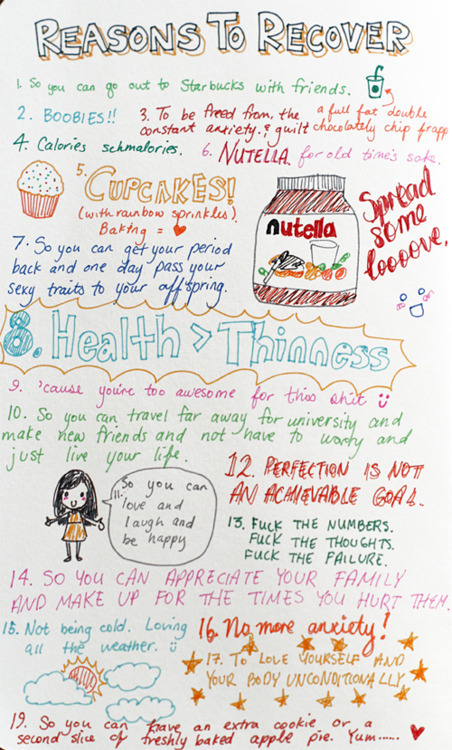 REASONS TO RECOVER
1. So you can go out to Starbucks with friends.
a full fat double
chocolately chip frapp
2. BOOBIES!!
3. To be freed from the
constant anxiety & guilt
4. Calories schmalories.
5.
CUPCAKES!
(with rainbow sprinkles).
Baking = ♥
6. NUTELLA for old time's sake.
nutella
Spread
some
loooove.
7. So you can get your period
back and one day pass your
sexy traits to your offspring.
8. Health > Thinness
9. 'cause you're too awesome for this shit
10. So you can travel far away for university and
make new friends and not have to worry and
just live your life.
11. So you can
love and
laugh and
be happy
12. PERFECTION IS NOT
AN ACHIEVABLE GOAL.
13. FUCK THE NUMBERS.
FUCK THE THOUGHTS.
FUCK THE FAILURE.
14. SO YOU CAN APPRECIATE YOUR FAMILY
AND MAKE UP FOR THE TIMES YOU HURT THEM.
15. Not being cold. Loving
all the weather.
16. No more anxiety!
17. TO LOVE YOURSELF AND
YOUR BODY UNCONDITIONALLY
19. So you can have an extra cookie or a
second slice of freshly baked apple pie. Yum.....